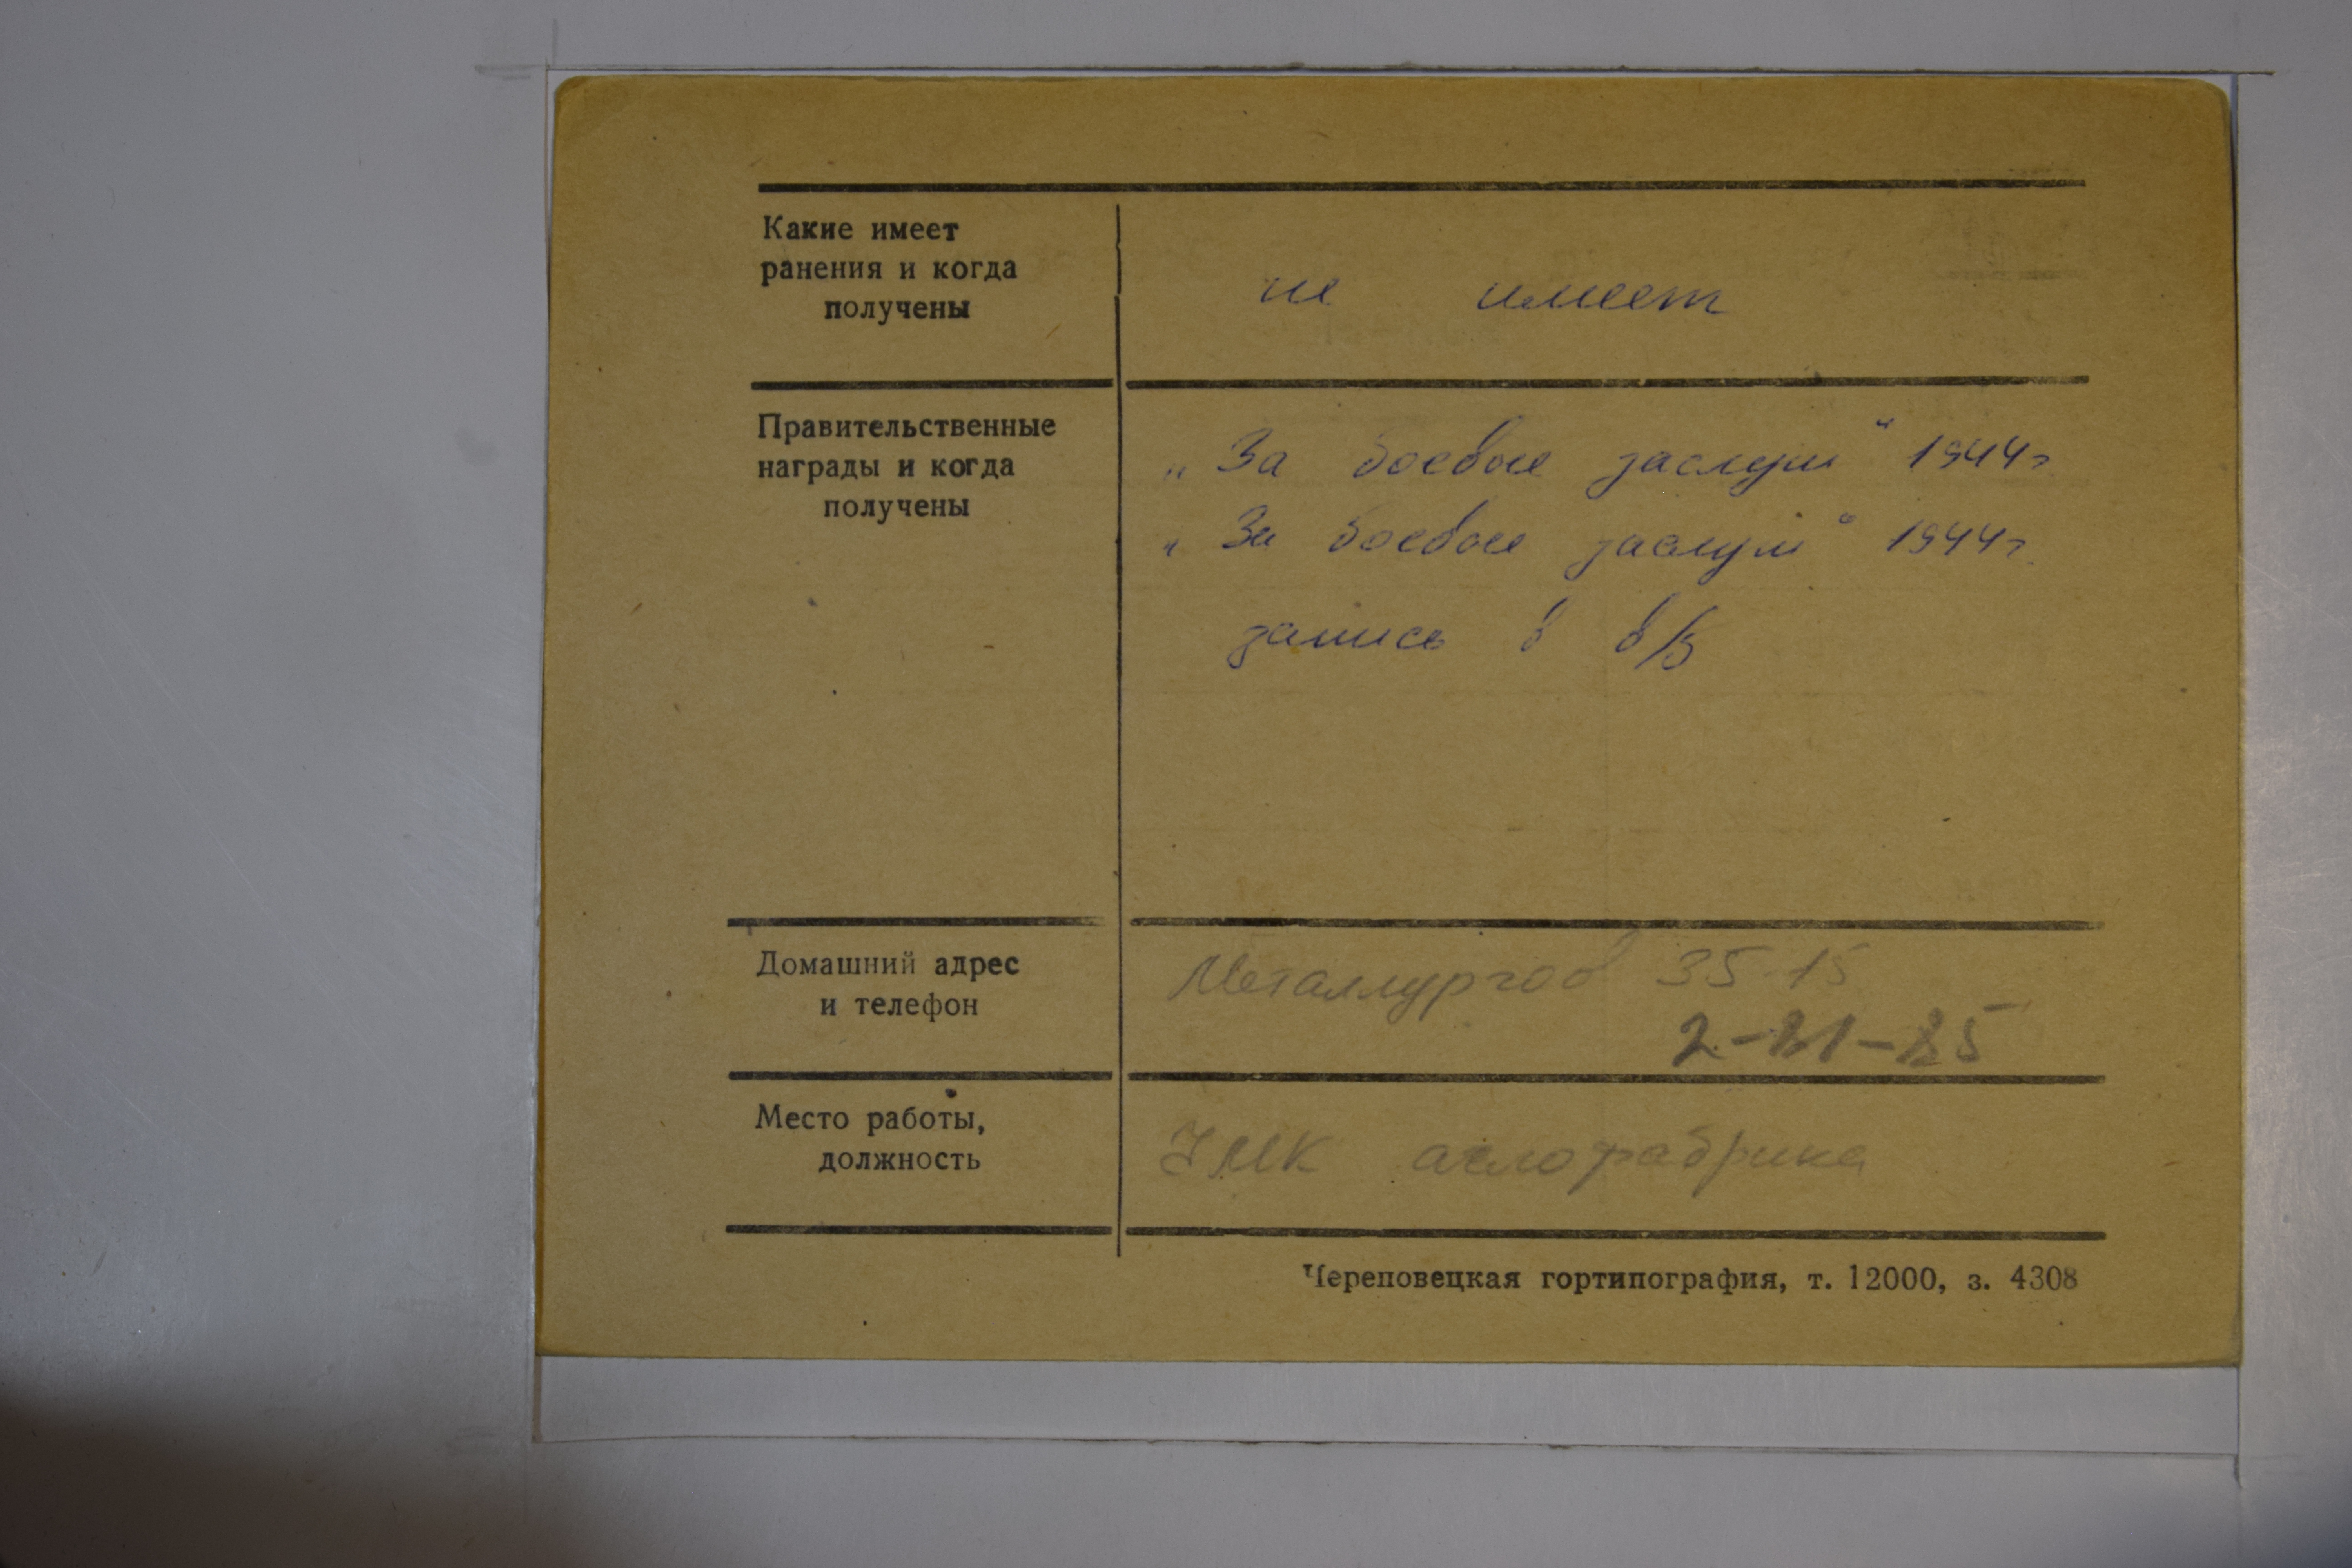 Какие имеет
ранения и когда
получены
не имеет
Правительственные
награды и когда
получены
„За боевые заслуги“ 1944г
„За боевые заслуги“ 1944г.
запись в в/б
Домашний адрес
и телефон
Металлургов 35-15
Место работы,
должность
ЧМК аглофабрика
Череповецкая гортипография, т. 12000, з. 4308